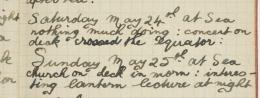 Saturday May 24th at Sea
nothing much doing: concert on
deck crossed the Equator:
Sunday May 25th at Sea
church on deck in morn: interes-
ting lantern lecture at night